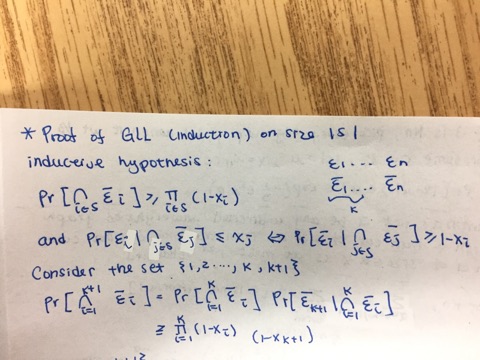 * Proof of GLL (induction) on size |S|
inductive hypothesis : ε1 .... εn
Pr[⋂i∈S ε̅i] ≥ ∏i∈S (1-xi) ε̅1 .... ε̅n
k
and Pr[εi | ⋂j∈S ε̅j] ≤ xj ⇔ Pr[ε̅i | ⋂j∈S ε̅j] ≥ 1-xi
Consider the set {1,2..., k, k+1}
Pr[⋂i=1^k+1 ε̅i] = Pr[⋂i=1^k ε̅i] Pr[ε̅k+1 | ⋂i=1^k ε̅i]
≥ ∏i=1^k (1-xi) (1-xk+1)